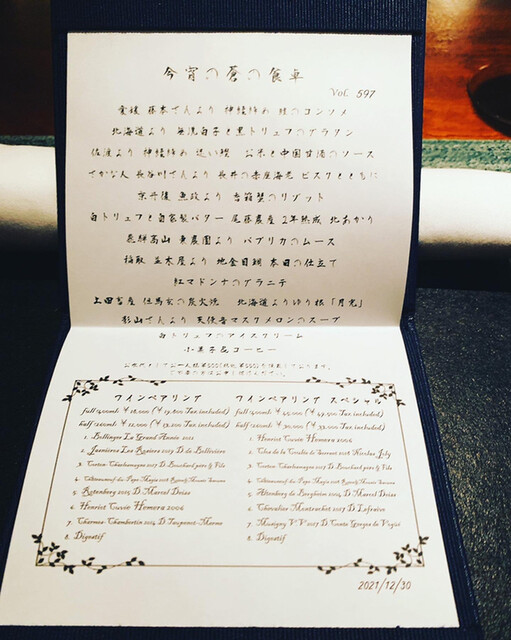 今宵の蒼の食卓
Vol. 597
愛媛 藤本さんより 神経締め 鮭のコンソメ
北海道より 無洗白子と黒トリュフのグラタン
佐渡より 神経締め 追い鰹 お米と中国甘酒のソース
さかな人 長谷川さんより 長井の赤座海老 ビスクとともに
京丹後 魚政より 香箱蟹のリゾット
白トリュフと自家製バター 尾藤農産 2年熟成 北あかり
飛騨高山 東農園より パプリカのムース
梅取 並木屋より 地金目鯛 本日の仕立て
紅マドンナのグラニテ
上田畜産 但馬玄の炭火焼 北海道よりゆり根「月光」
杉山さんより 天使音マスクメロンのスープ
白トリュフのアイスクリーム
小菓子&コーヒー
ワインペアリング
full (400ml) ¥18,000 (¥19,800 Tax included)
half (280ml) ¥12,000 (¥13,200 Tax included)
1. Bollinger La Grand Année 2012
2. Jasnières Les Rosiers 2017 D de Bellivière
3. Corton Charlemagne 2017 D Bouchard père & Fils
5. Rotenberg 2015 D Marcel Deiss
6. Henriot Cuvée Hemera 2006
7. Charmes Chambertin 2014 D Taupenot-Merme
8. Digestif
ワインペアリング スペシャル
full (400ml) ¥45,000 (¥49,500 Tax included)
half (280ml) ¥30,000 (¥33,000 Tax included)
1. Henriot Cuvée Hemera 2006
2. Clos de la Coulée de Serrant 2018 Nicolas Joly
3. Corton Charlemagne 2017 D Bouchard père & Fils
5. Altenberg de Bergheim 2015 D Marcel Deiss
6. Chevalier Montrachet 2017 D Leflaive
7. Musigny VV 2017 D Comte Georges de Vogüé
8. Digestif
2021/12/30